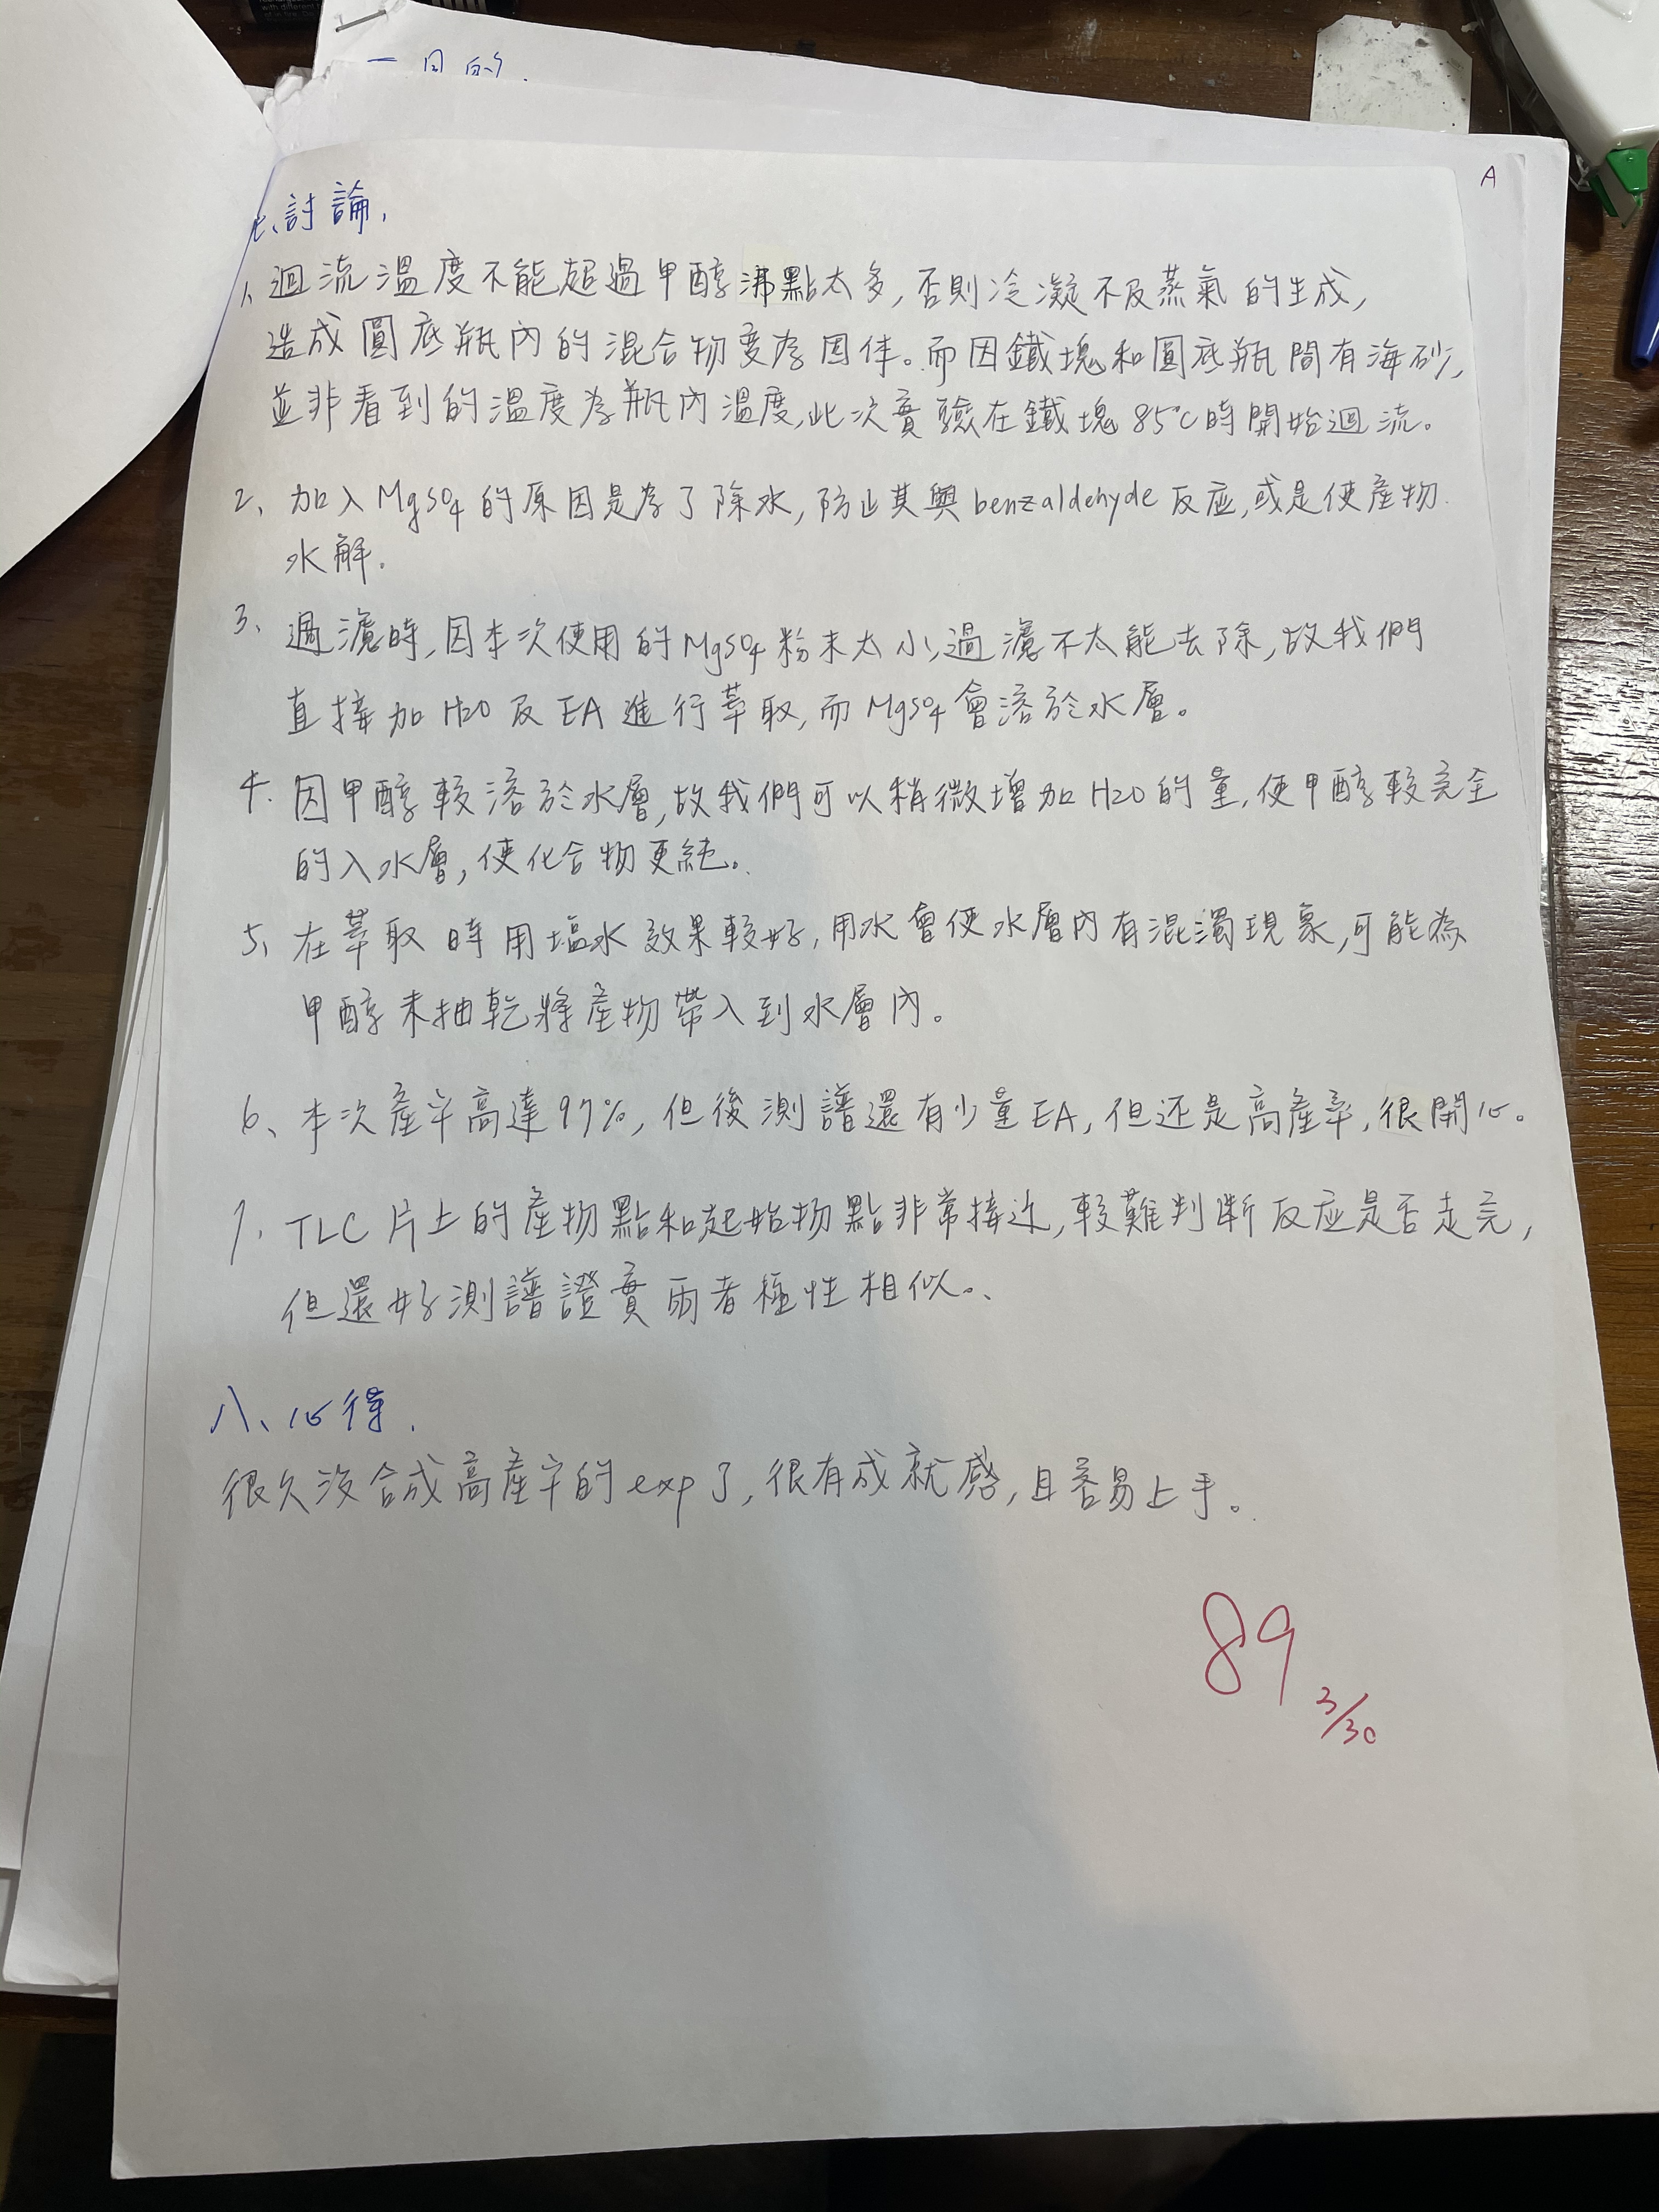 一、目的.
A
七、討論,
1、迴流溫度不能超過甲醇沸點太多,否則冷凝不及蒸氣的生成,
造成圓底瓶內的混合物變為固体。而因鐵塊和圓底瓶間有海砂,
並非看到的溫度為瓶內溫度,此次實驗在鐵塊85℃時開始迴流。
2、加入MgSO4的原因是為了除水,防止其與benzaldehyde反应,或是使產物
水解.
3、過濾時,因本次使用的MgSO4粉末太小,過濾不太能去除,故我們
直接加H2O及EA進行萃取,而MgSO4會溶於水層。
4.因甲醇較溶於水層,故我們可以稍微增加H2O的量,使甲醇較完全
的入水層,使化合物更純。
5、在萃取時用塩水效果較好,用水會使水層內有混濁現象,可能為
甲醇未抽乾將產物帶入到水層內。
6、本次產率高達97%,但後測譜還有少量EA,但还是高產率,很開心。
7.TLC片上的產物點和起始物點非常接近,較難判斷反应是否走完,
但還好測譜證實兩者極性相似。
八、心得.
很久沒合成高產率的exp了,很有成就感,且容易上手。
89
3/30